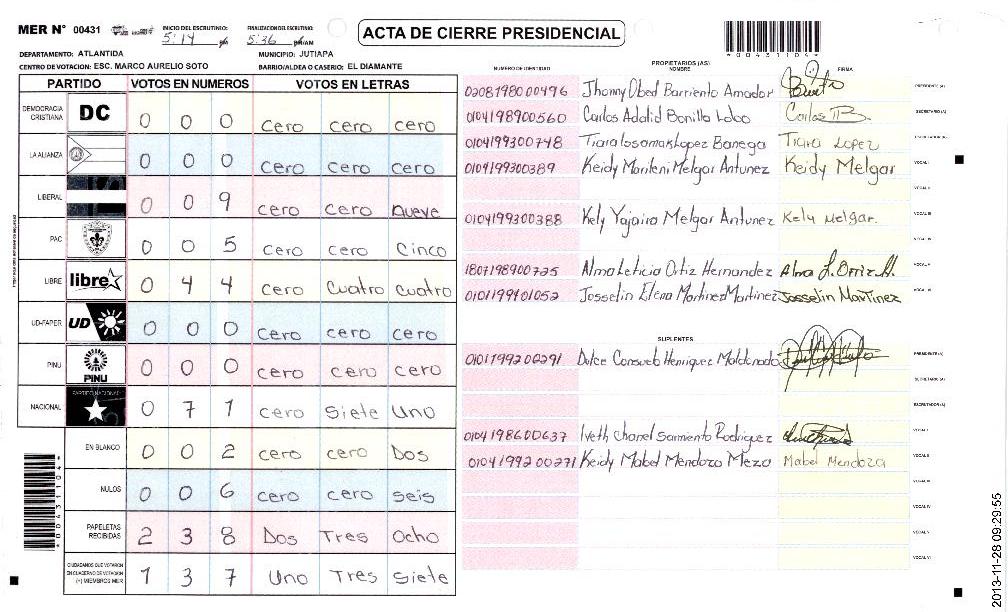 MER N° 00431
INICIO DEL ESCRUTINIO: FINALIZACION DEL ESCRUTINIO:
5:14 PM 5:36 PM/AM
ACTA DE CIERRE PRESIDENCIAL
*00431104*
DEPARTAMENTO: ATLANTIDA MUNICIPIO: JUTIAPA
CENTRO DE VOTACION: ESC. MARCO AURELIO SOTO BARRIO/ALDEA O CASERIO: EL DIAMANTE
PARTIDO VOTOS EN NUMEROS VOTOS EN LETRAS
DEMOCRACIA CRISTIANA DC 0 0 0 cero cero cero
LA ALIANZA 0 0 0 cero cero cero
LIBERAL 0 0 9 cero cero nueve
PAC 0 0 5 cero cero Cinco
LIBRE libre 0 4 4 cero cuatro cuatro
UD-FAPER UD 0 0 0 cero cero cero
PINU PINU 0 0 0 cero cero cero
NACIONAL PARTIDO NACIONAL 0 7 1 cero Siete Uno
EN BLANCO 0 0 2 cero cero Dos
NULOS 0 0 6 cero cero seis
PAPELETAS RECIBIDAS 2 3 8 Dos Tres Ocho
CIUDADANOS QUE VOTARON EN CUADERNO DE VOTACION (+) MIEMBROS MER 1 3 7 Uno Tres Siete
*00431104*
PROPIETARIOS (AS)
NUMERO DE IDENTIDAD NOMBRE FIRMA
0208198000496 Jhonny Obed Barriento Amador PRESIDENTE (A)
0104198900560 Carlos Adalid Bonilla Lobo Carlos B. SECRETARIO (A)
0104199300748 Tiara Iosamak Lopez Banega Tiara Lopez ESCRUTADOR (A)
0104199300389 Keidy Marileni Melgar Antunez Keidy Melgar VOCAL I
VOCAL II
0104199300388 Kely Yajaira Melgar Antunez Kely Melgar. VOCAL III
VOCAL IV
1807198900725 Alma Leticia Ortiz Hernandez Alma L. Ortiz H. VOCAL V
0101199101052 Josselin Elena Martinez Martinez Josselin Martinez VOCAL VI
SUPLENTES
0101199200291 Dulce Consuelo Henriquez Maldonado PRESIDENTE (A)
SECRETARIO (A)
ESCRUTADOR (A)
0104198600637 Iveth Chanel Sarmiento Rodriguez VOCAL I
0104199200271 Keidy Mabel Mendoza Meza Mabel Mendoza VOCAL II
VOCAL III
VOCAL IV
VOCAL V
VOCAL VI
2013-11-28 09:29:55